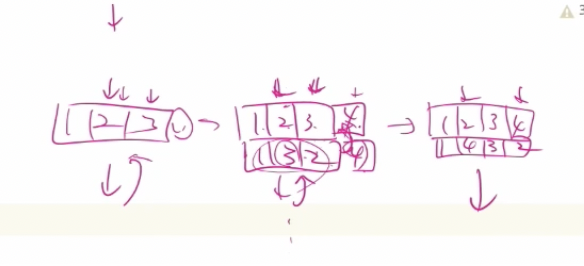 3
1 2 3
1 2 3 4
1 3 2 4
1 2 3 4
1 4 3 2